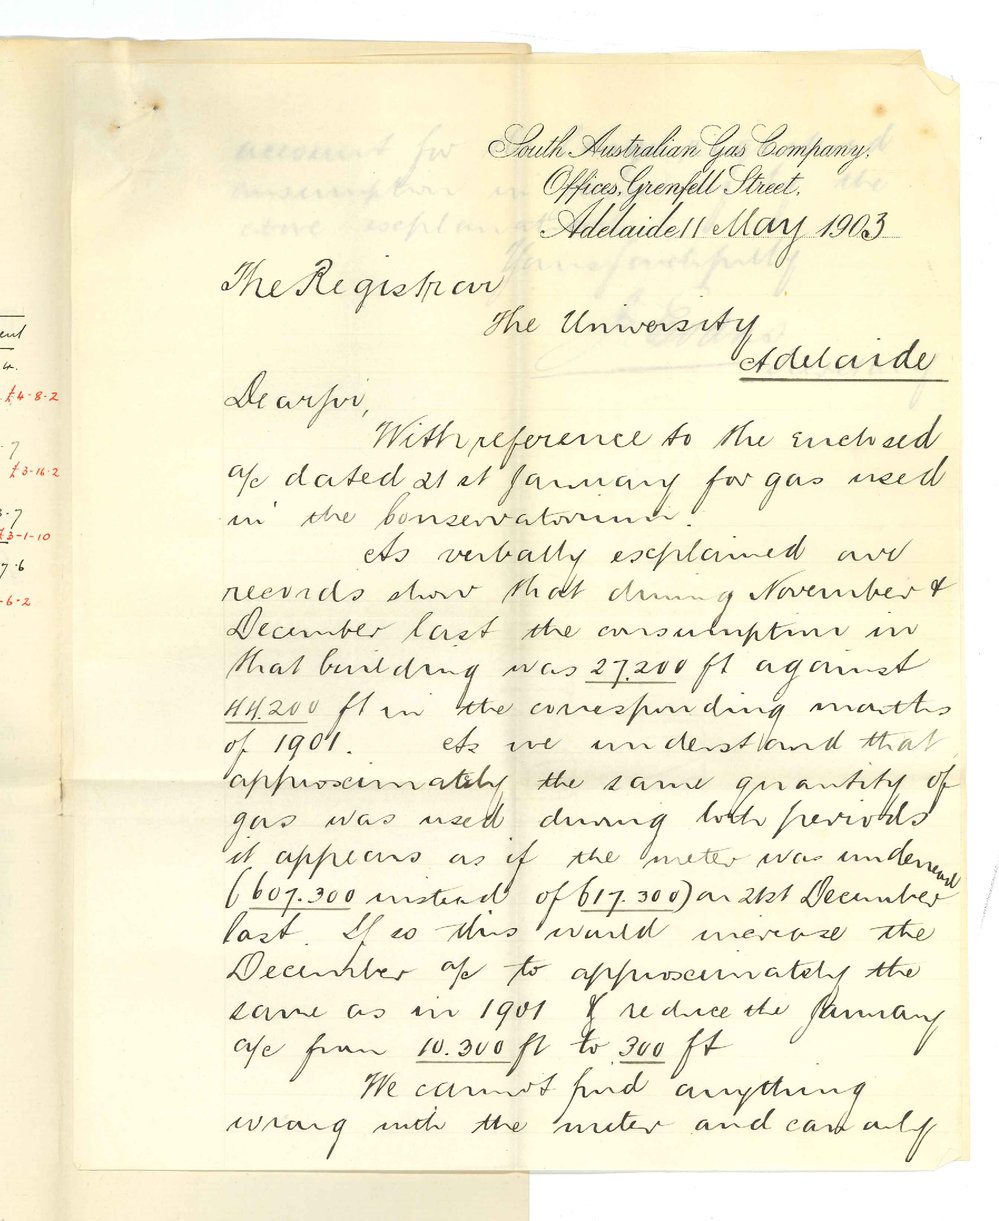 South Australian Gas Company.
Offices, Grenfell Street,
Adelaide 11 May 1903
The Registrar
The University
Adelaide
Dear Sir,
With reference to the enclosed
a/c dated 21st January for gas used
in the Conservatorium.
As verbally explained our
records show that during November &
December last the consumption in
that building was 27.200 ft against
44.200 ft in the corresponding months
of 1901. As we understand that
approximately the same quantity of
gas was used during both periods
it appears as if the meter was underread
(607.300 instead of 617.300) on 21st December
last. If so this would increase the
December a/c to approximately the
same as in 1901 & reduce the January
a/c from 10.300 ft to 300 ft
We cannot find anything
wrong with the meter and can only
£4-8-2
7
£3-14-2
3-7
£3-1-10
7.6
-6-2
account for
consumption in the
above explanat
Yours faithfully